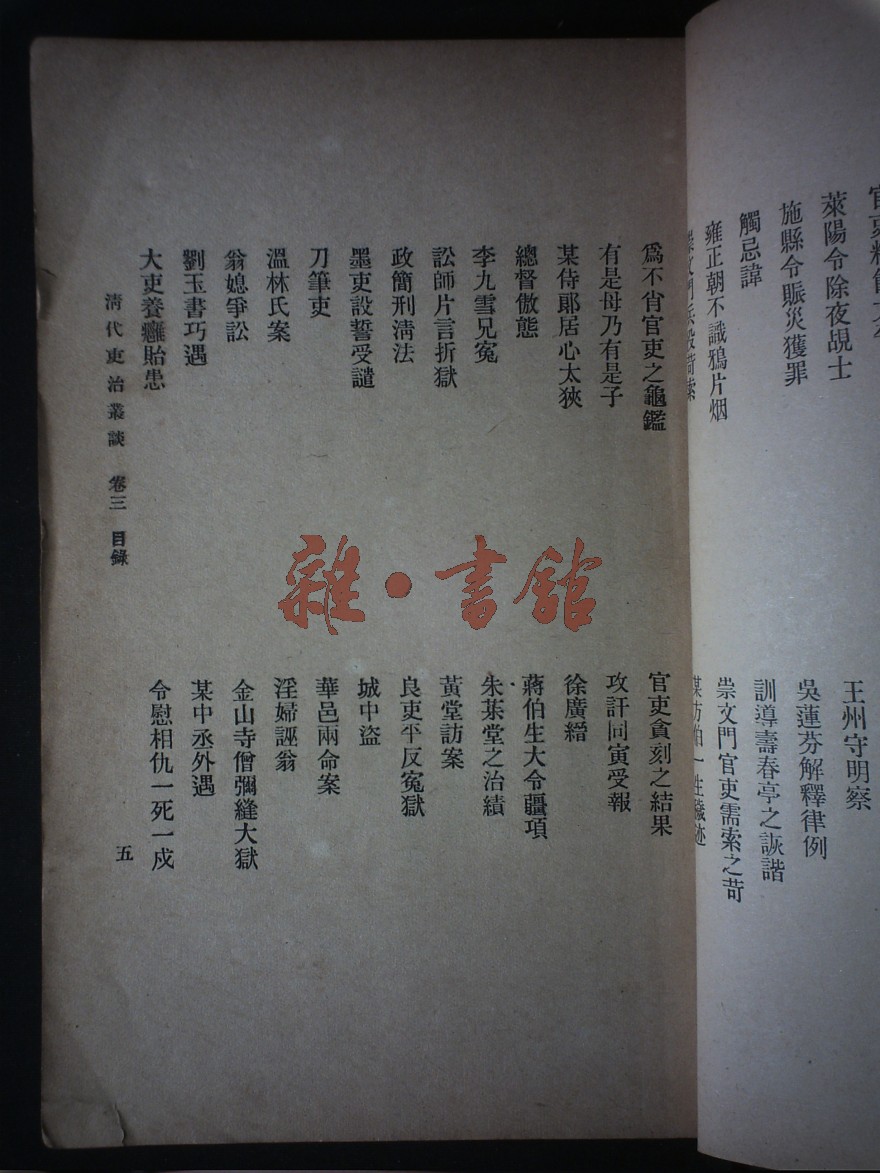 萊陽令除夜覘士
王州守明察
施縣令賑災獲罪
吳蓮芬解釋律例
觸忌諱
訓導壽春亭之詼諧
雍正朝不識鴉片烟
崇文門官吏需索之苛
爲不肖官吏之龜鑑
官吏貪刻之結果
有是母乃有是子
攻訐同寅受報
某侍郞居心太狹
徐廣縉
總督傲態
蔣伯生大令疆項
李九雪兄冤
朱茮堂之治績
訟師片言折獄
黃堂訪案
政簡刑淸法
良吏平反冤獄
墨吏設誓受譴
城中盜
刀筆吏
華邑兩命案
溫林氏案
淫婦誣翁
翁媳爭訟
金山寺僧彌縫大獄
劉玉書巧遇
某中丞外遇
大吏養癰貽患
令慰相仇一死一戍
淸代吏治叢談 卷三 目錄
五
雜·書館